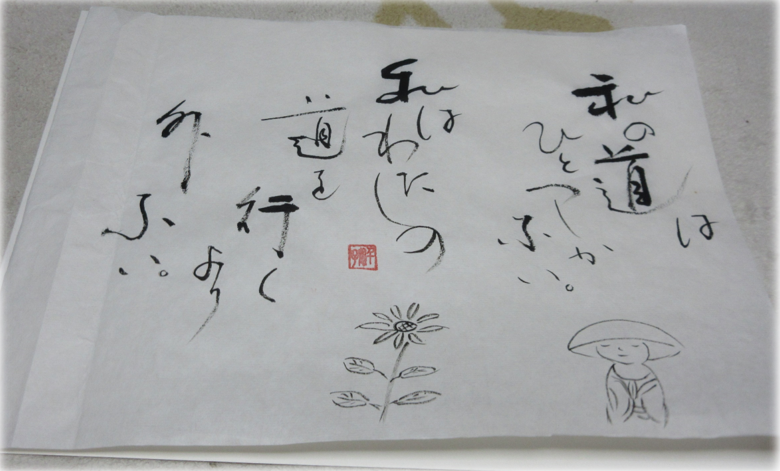 私の道は
ひとつしか
ない。
私は
わたしの
道を
行く
より
外
ない。